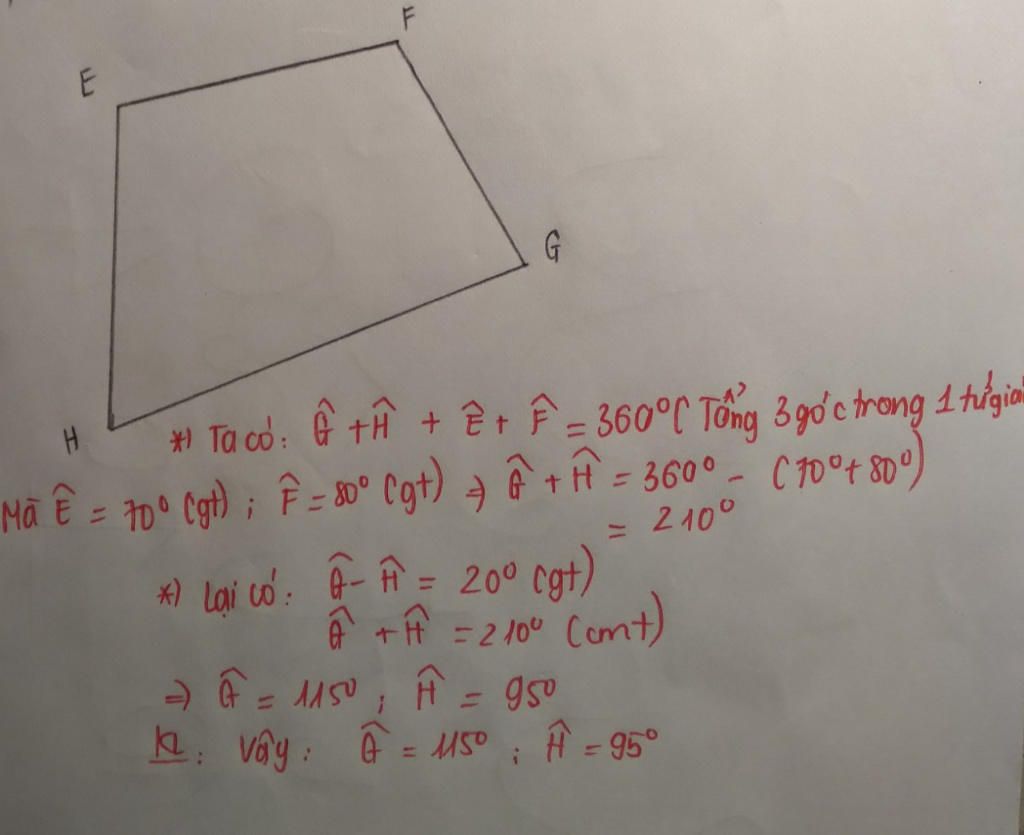 F
E
G
H
*) Ta có: Ĝ + Ĥ + Ê + F̂ = 360° ( Tổng 3 góc trong 1 tứ giác
Mà Ê = 70° (gt) ; F̂ = 80° (gt) => Ĝ + Ĥ = 360° - (70° + 80°)
= 210°
*) Lại có: Ĝ - Ĥ = 20° (gt)
Ĝ + Ĥ = 210° (cmt)
=> Ĝ = 115° ; Ĥ = 95°
KL: Vậy: Ĝ = 115° ; Ĥ = 95°